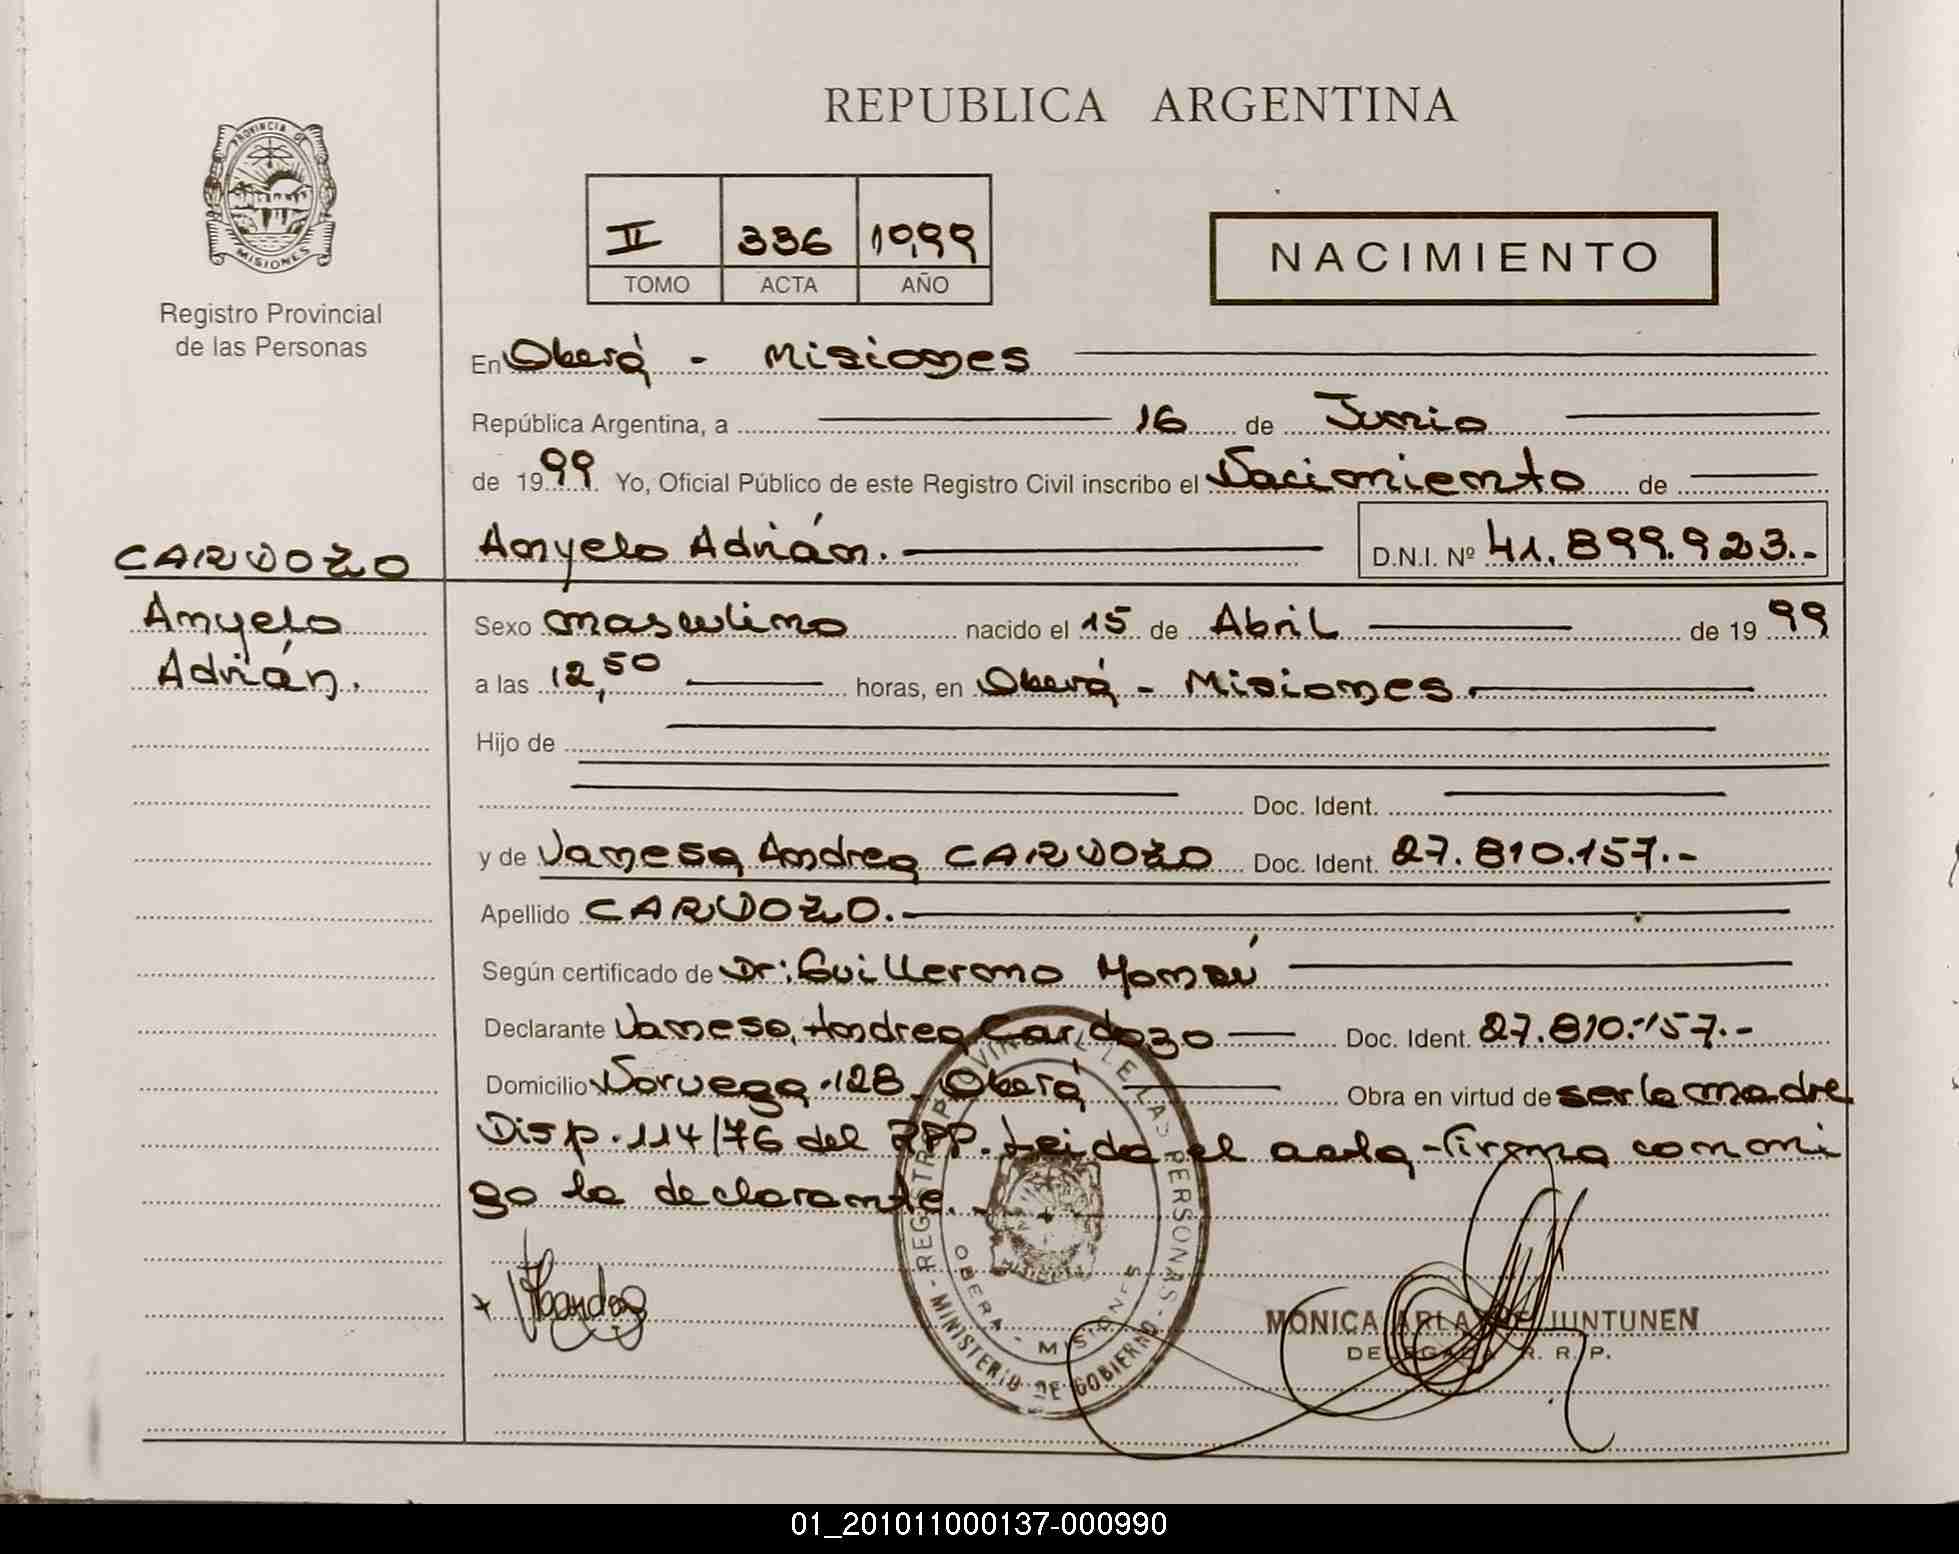 REPUBLICA ARGENTINA
PROVINCIA DE
MISIONES
Registro Provincial
de las Personas
II 336 1999
TOMO ACTA AÑO
NACIMIENTO
En Oberá - Misiones
República Argentina, a 16 de Junio
de 1999 Yo, Oficial Público de este Registro Civil inscribo el Nacimiento de
Anyelo Adrián. D.N.I. Nº 41.899.923.-
CARDOZO
Anyelo
Adrián.
Sexo masculino nacido el 15 de Abril de 1999
a las 12,50 horas, en Oberá - Misiones
Hijo de
Doc. Ident.
y de Vanesa Andrea CARDOZO Doc. Ident. 27.810.157.-
Apellido CARDOZO.
Según certificado de Dr: Guillermo
Declarante Vanesa Andrea Cardozo Doc. Ident. 27.810.157.-
Domicilio Noruega 128, Oberá Obra en virtud de ser la madre
Disp. 114/76 del RPP. Leida el acta - firma conmi
go la declarante. -
REGISTRO PROVINCIAL DE LAS PERSONAS - MINISTERIO DE GOBIERNO
OBERA - MISIONES
MONICA ARLA DE JUNTUNEN
DELEGADA R. R. P.
01_201011000137-000990